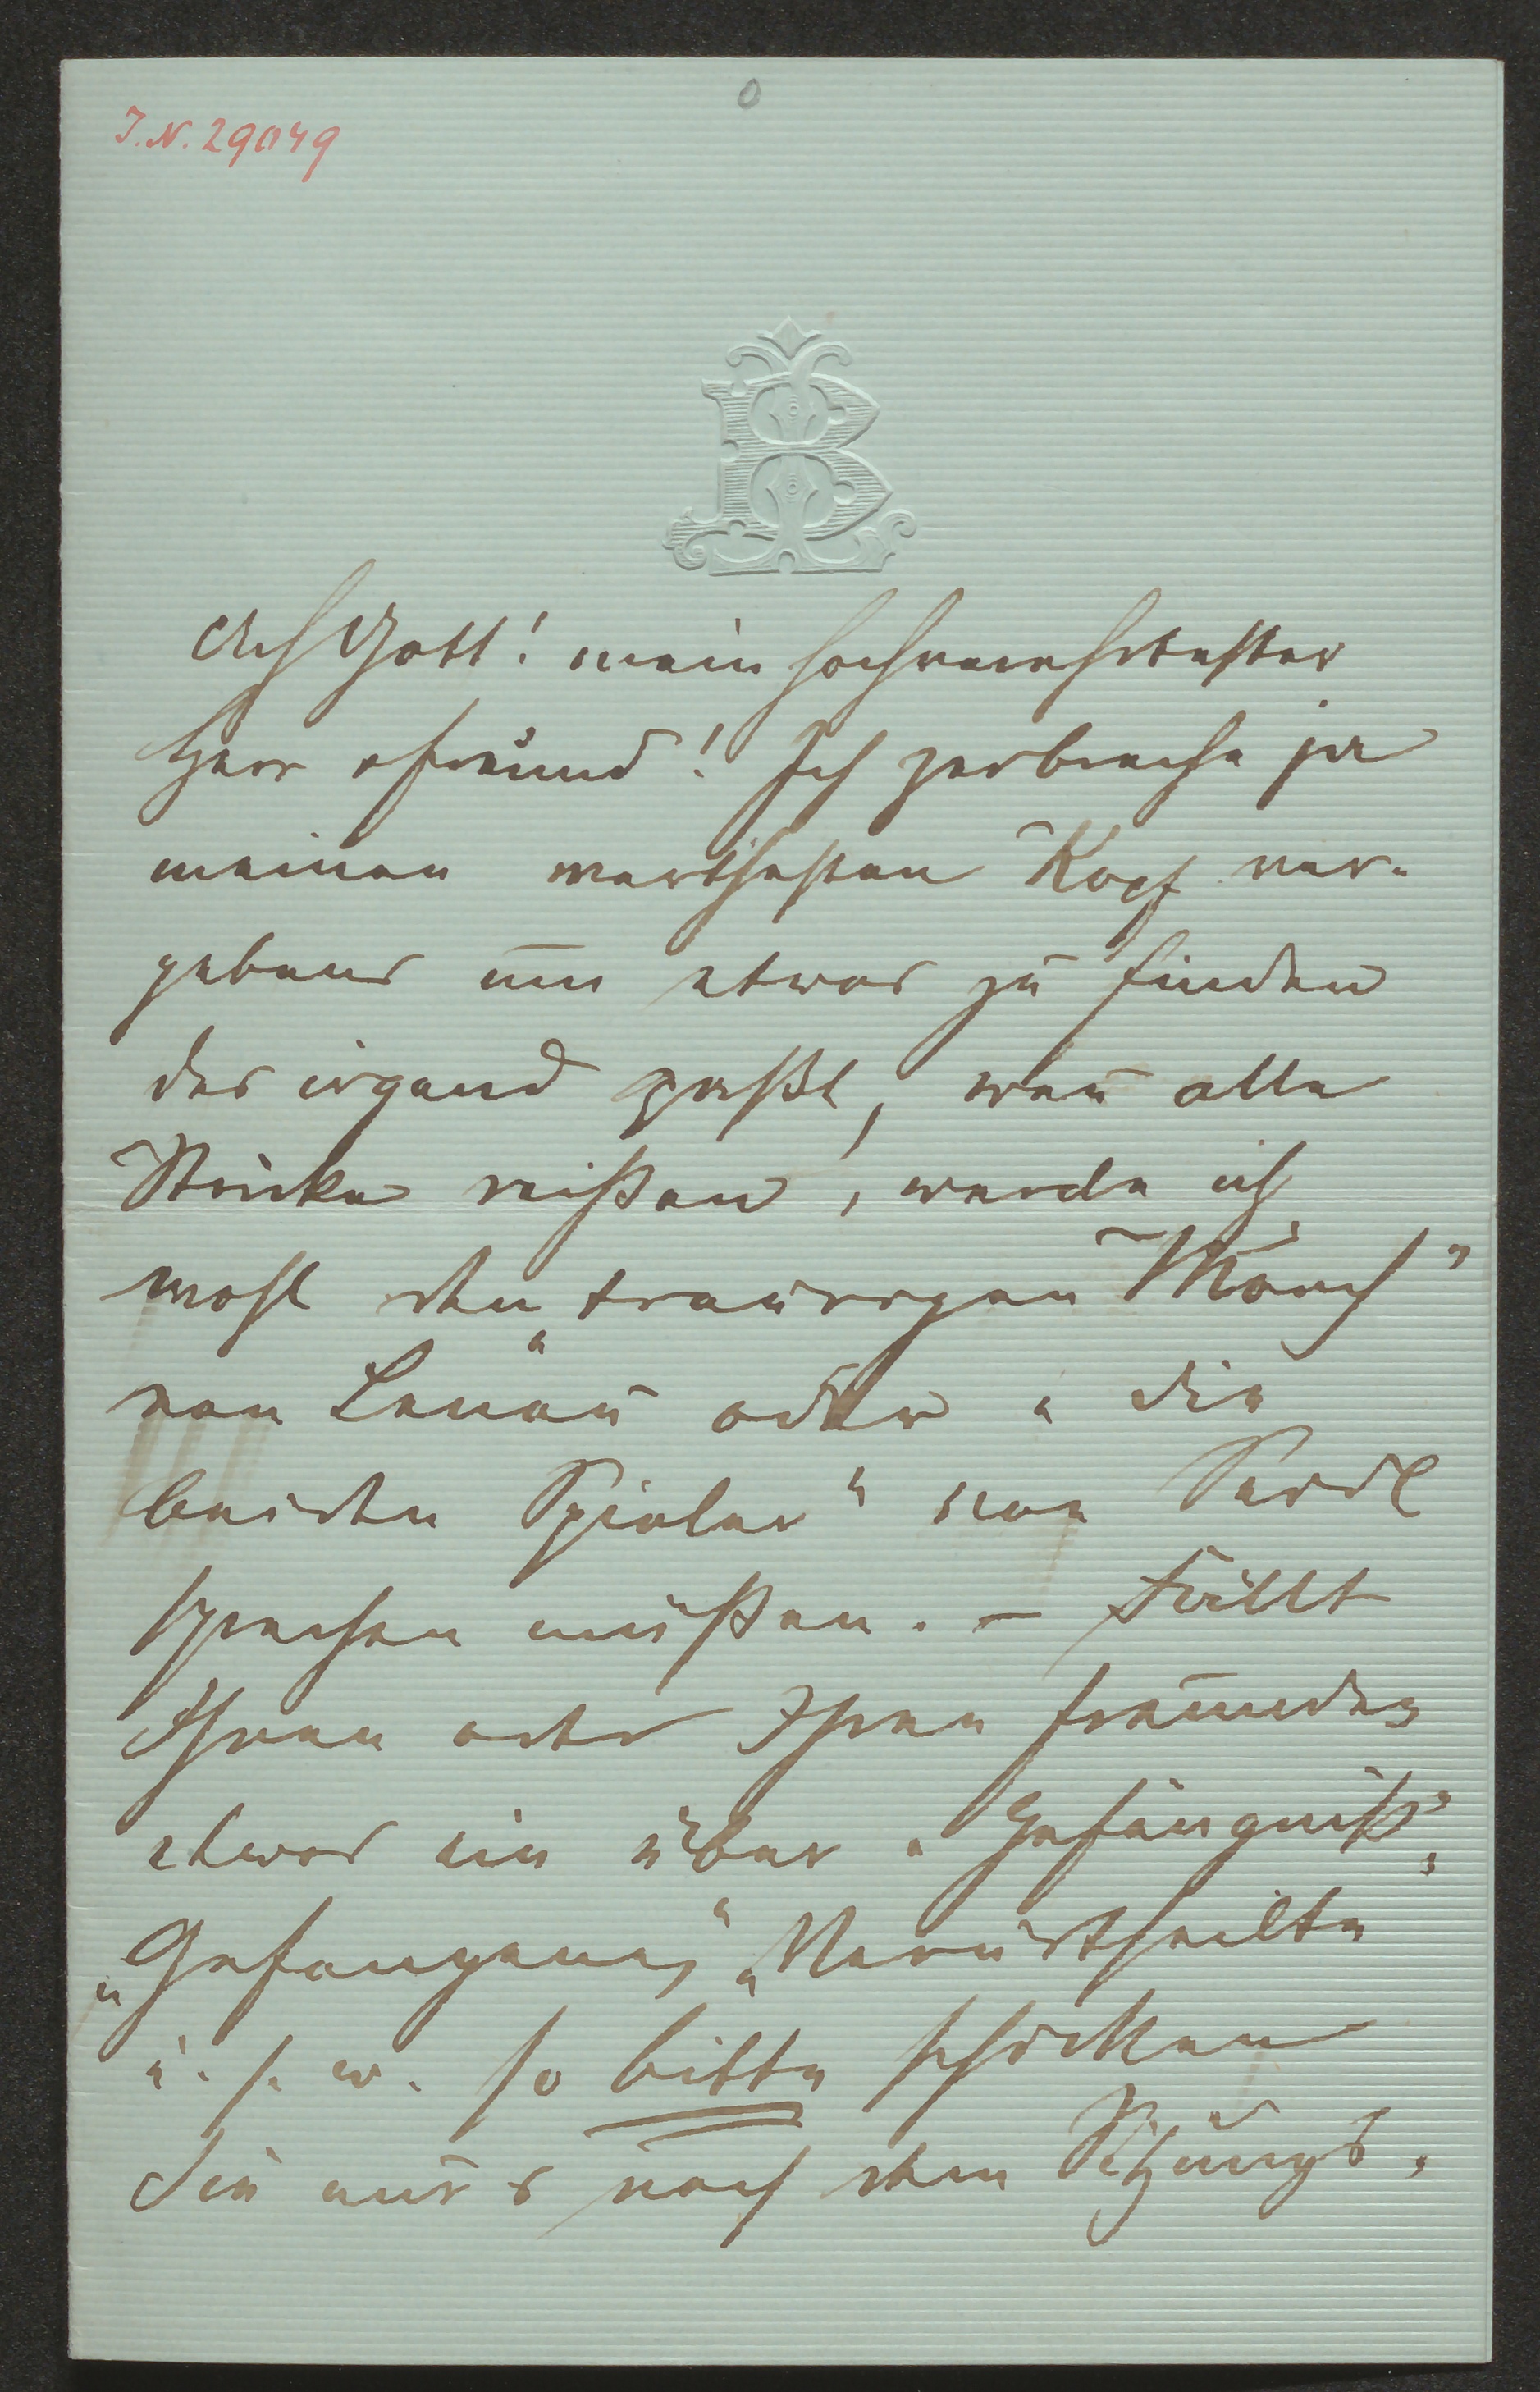 0
I.N. 29049
B
Ach Gott! mein hochverehrtester
Herr Freund! Ich zerbreche ja
meinen werthesten Kopf ver-
gebens um etwas zu finden
das irgend paßt, wen̄ alle
Stricke reißen, werde ich
wohl den „traurigen Mönch"
von Lenau oder „die
beiden Spieler" von Seidl
sprechen müßen. – Fällt
Ihnen oder Ihren Freunden
etwas ein über „Gefängniß",
„Gefangene", „Verurtheilte
u. s. w. so bitte schicken
Sie mir's nach dem